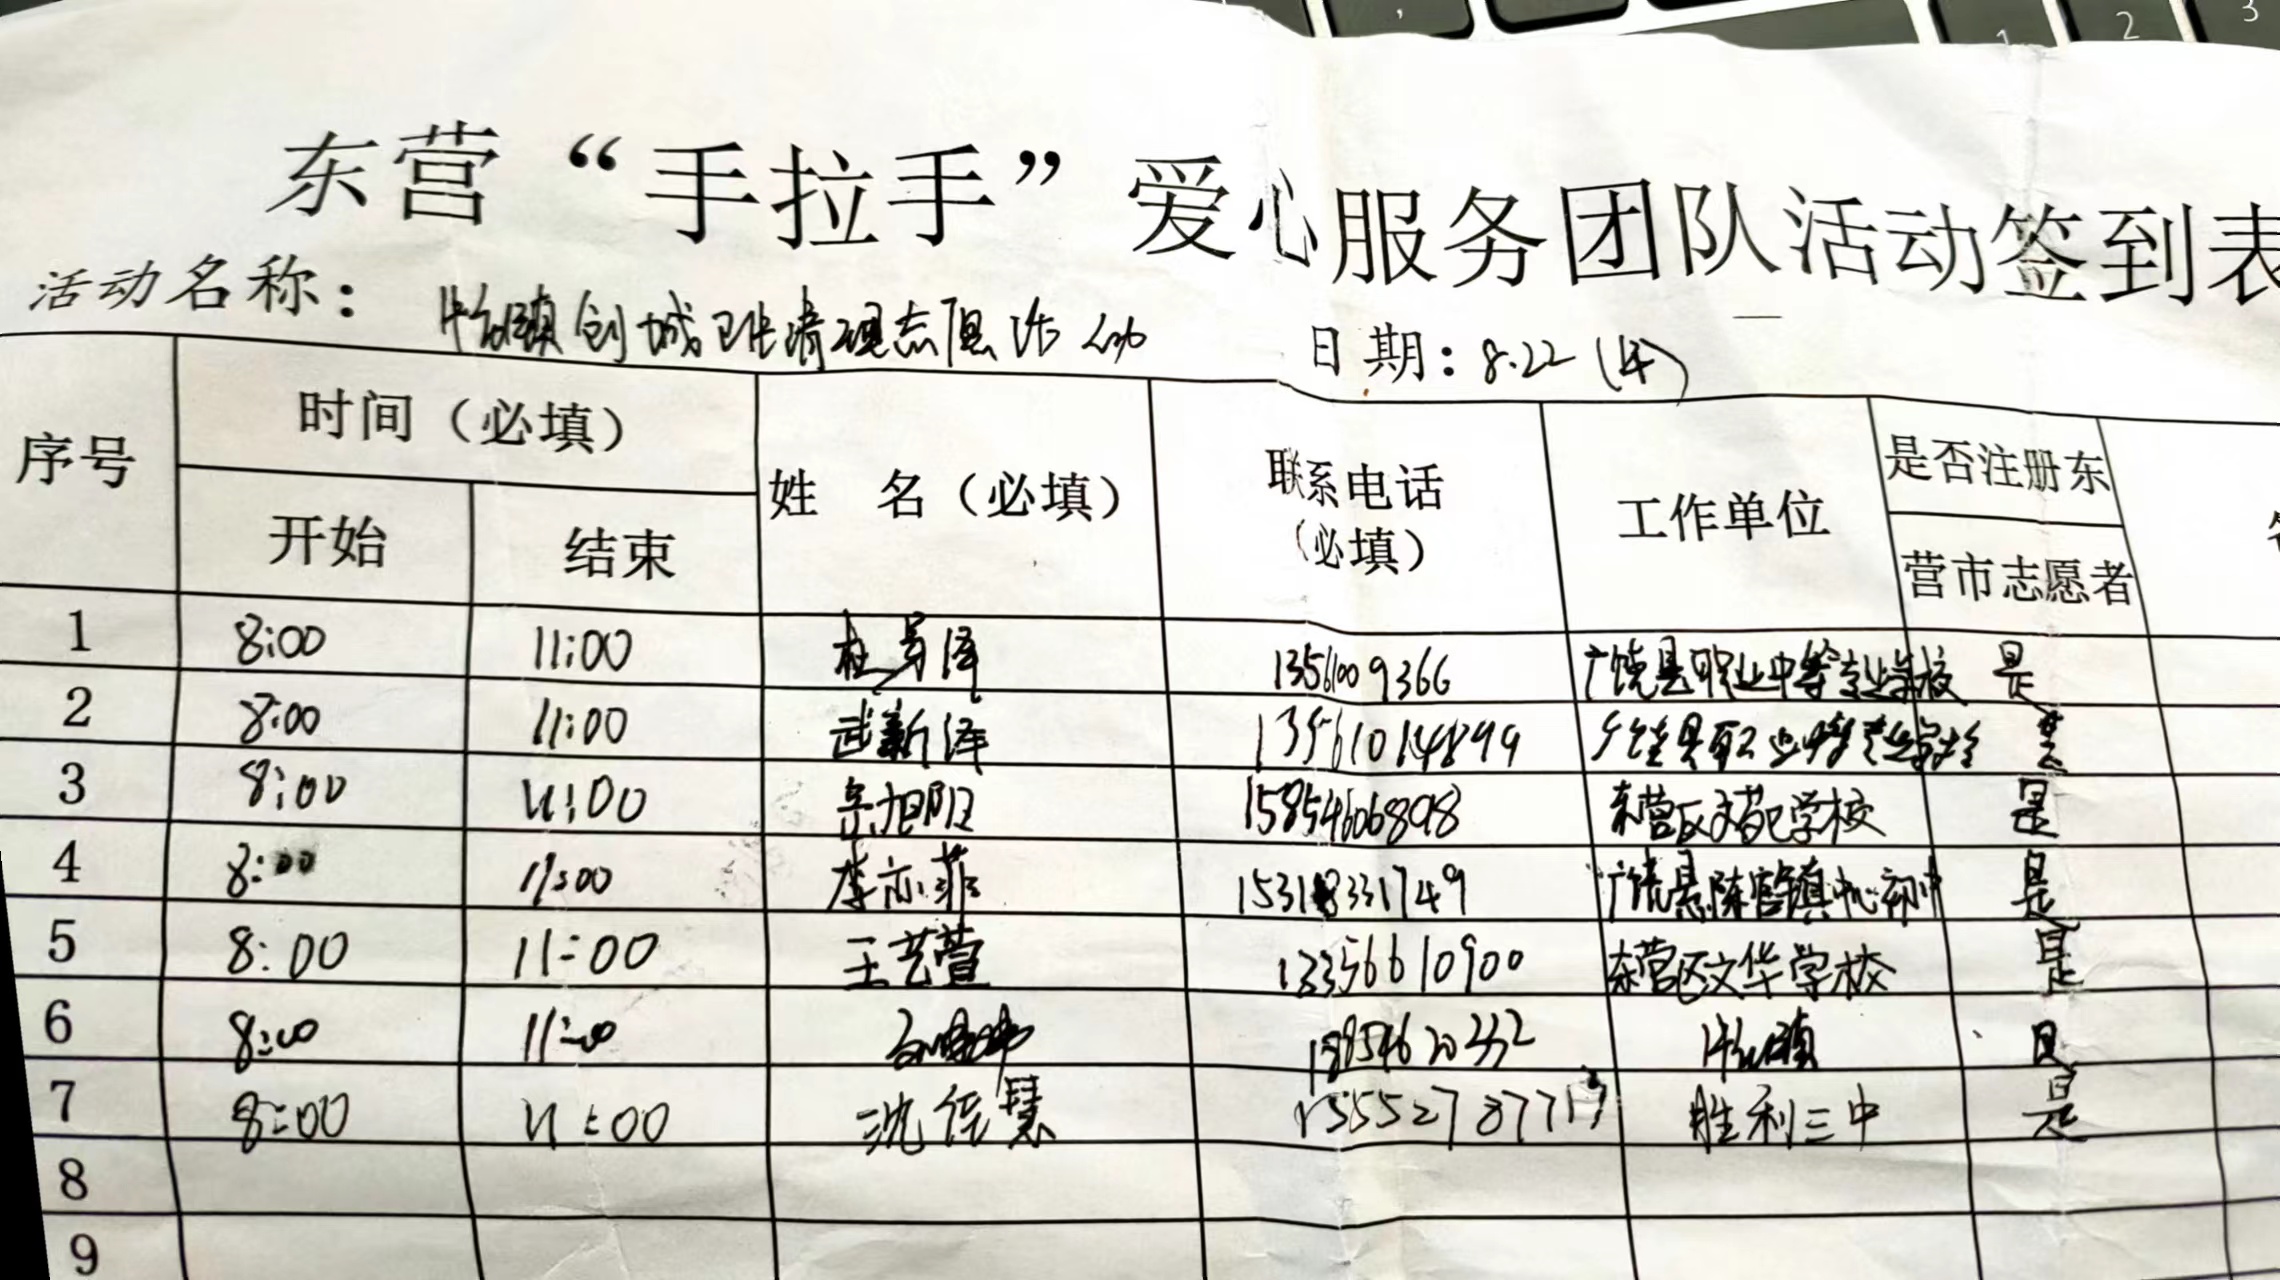 东营“手拉手”爱心服务团队活动签到表
活动名称： 怡颐创城 清理志愿活动 日期：8.22（4）
序号 时间（必填） 姓 名（必填） 联系电话（必填） 工作单位 是否注册东营市志愿者
开始 结束
1 8:00 11:00 杜 泽 13561009366 广饶县职业中等专业学校 是
2 8:00 11:00 武新泽 广饶县职业中等专业学校 是
3 8:00 11:00 宗旭阳 东营区文苑学校 是
4 8:00 11:00 李亦菲 15318331749 广饶县陈官镇中心初中 是
5 8:00 11:00 王艺萱 13356610900 东营区文华学校 是
6 8:00 11:00 是
7 8:00 11:00 沈佳慧 胜利三中 是
8
9